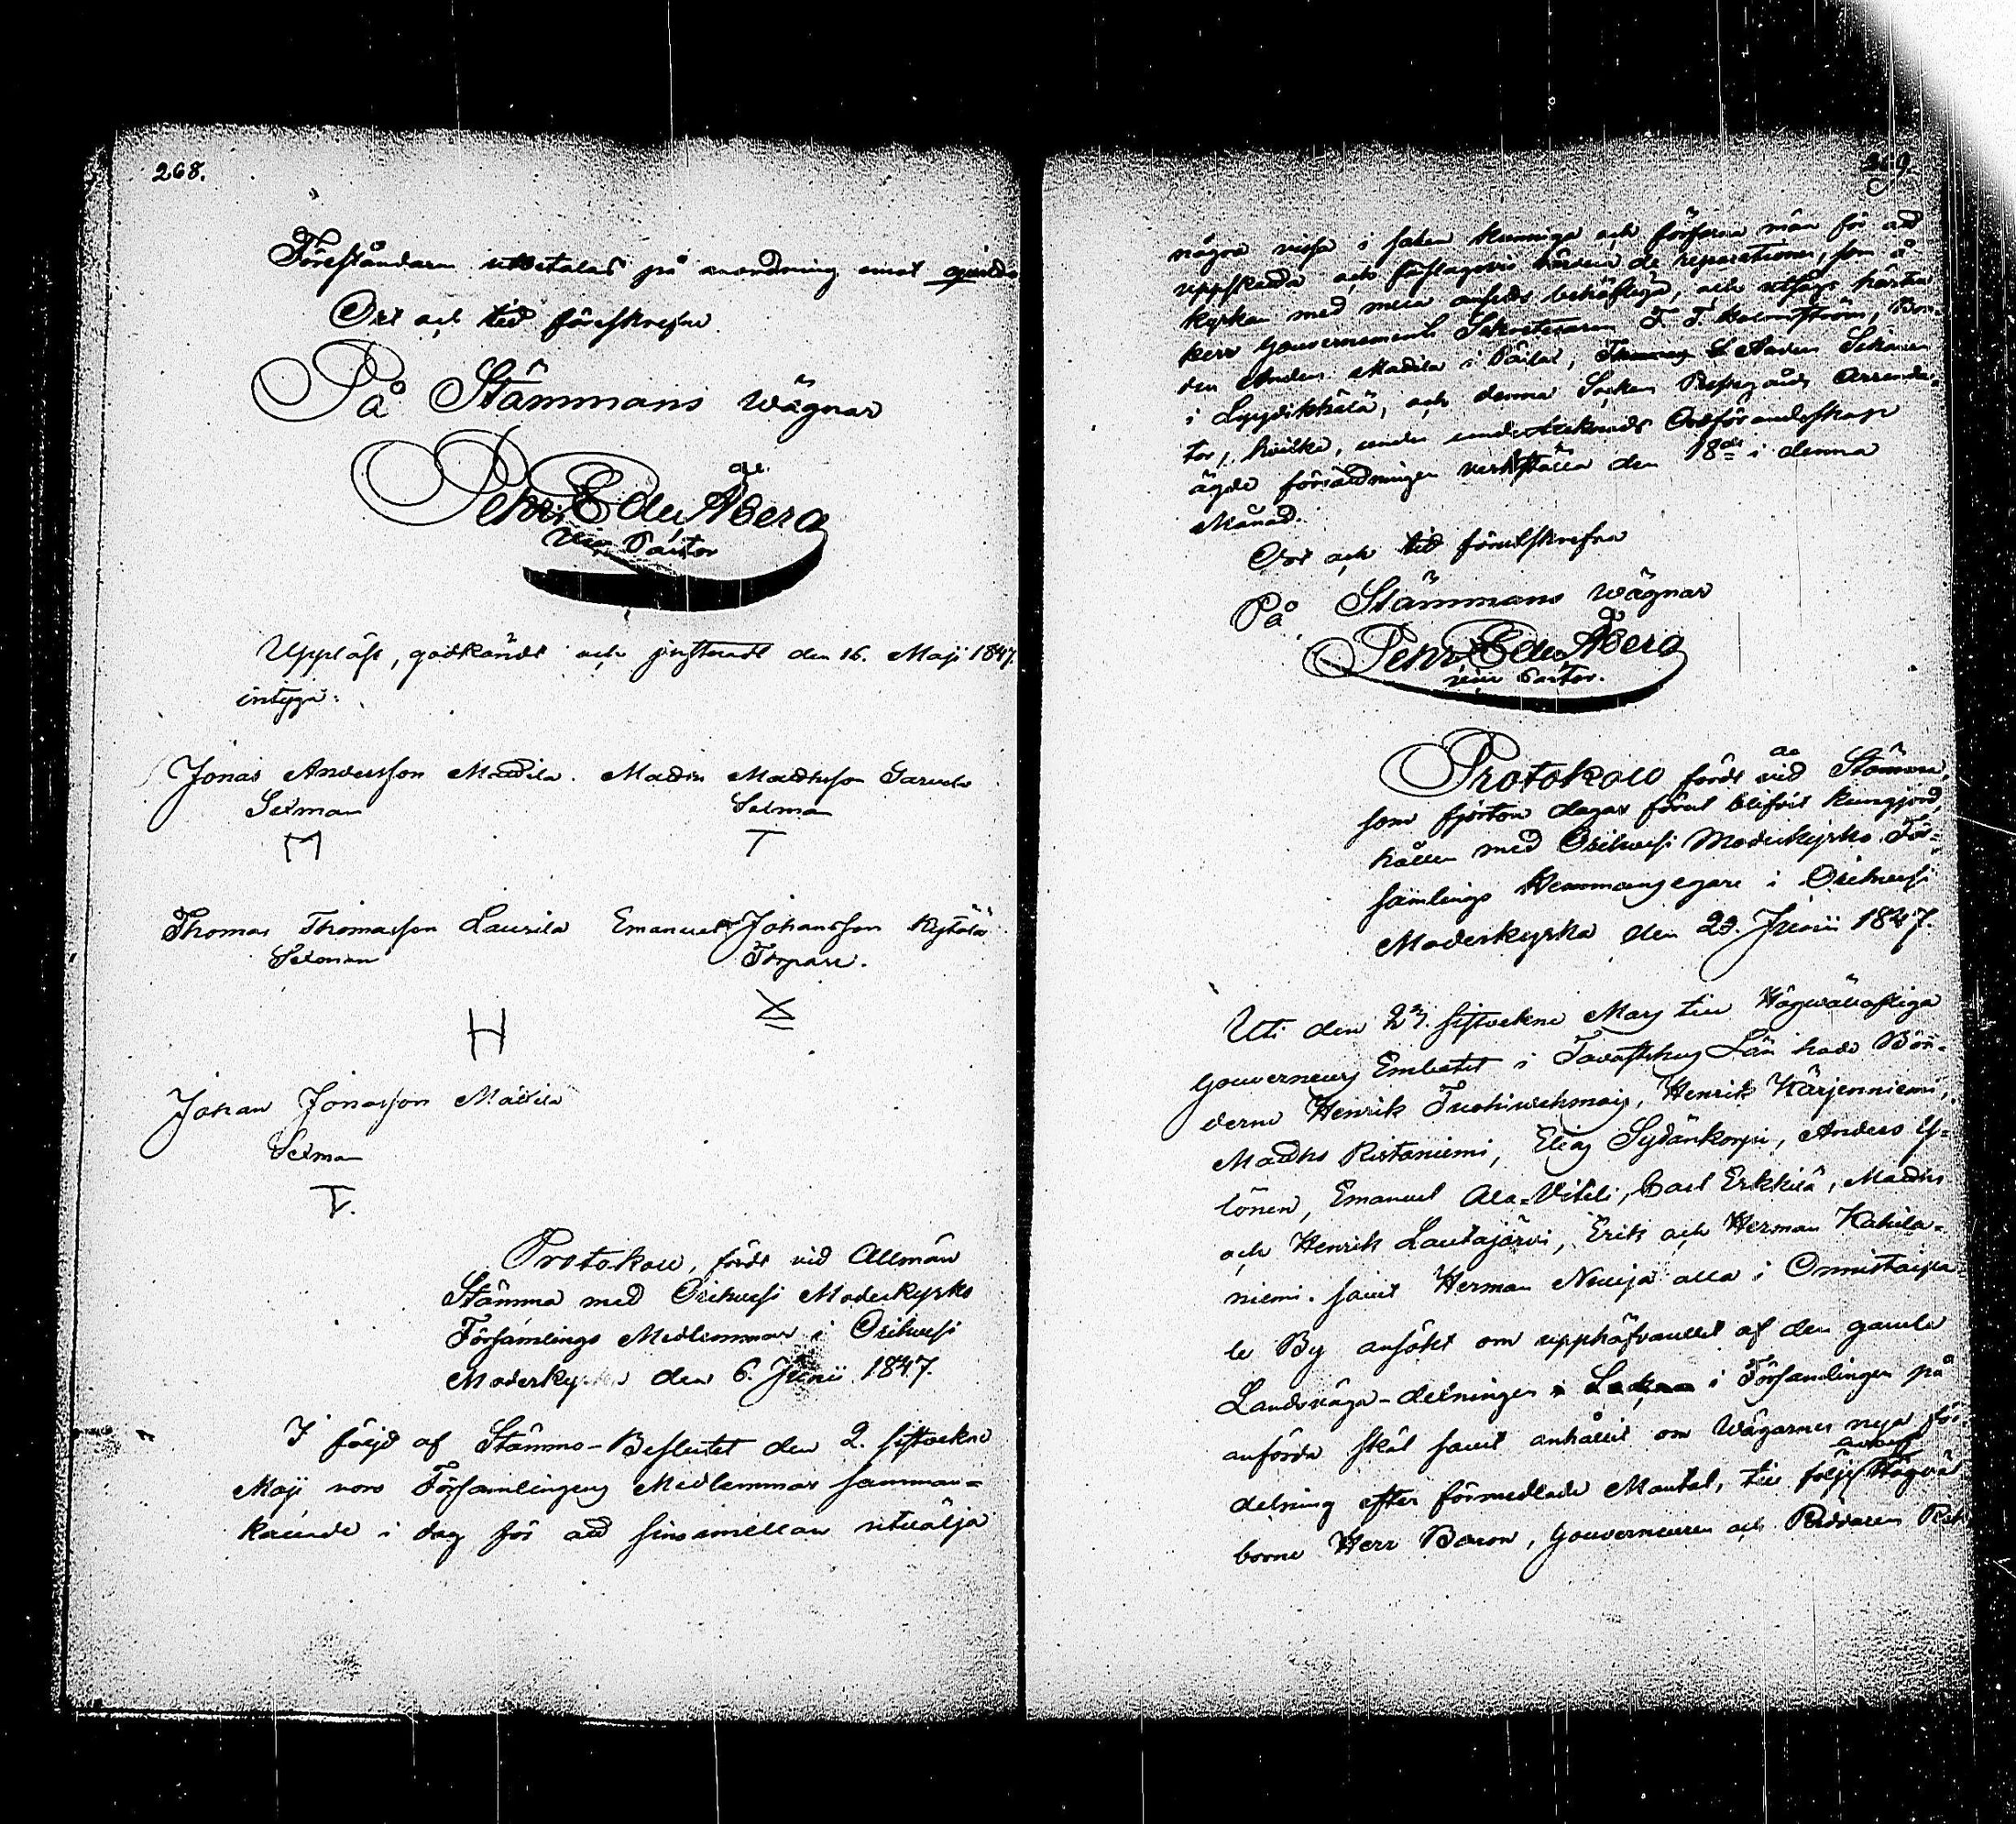 268.
Föreståndaren utbetalas på anordning emot qvitto
Ort och tid föreskrefne
På Stämmans wägnar
Pehr Edu. Åberg
Vice Pastor
Uppläst, godkändt och justeradt den 16. Maji 1847.
intyga:
Jonas Andersson Mattila. Matts Mattsson
Sexman Sexman
M T
Thomas Thomasson Laurila Emanuel Johansson Kytölä
Sexman Torpare.
H X
Johan Jonasson Mattila
Sexman
T.
Protokoll, fördt vid Allmän
Stämma med Orihvesi Moderkyrko
Församlings Medlemmar i Orihvesi
Moderkyrka den 6. Junii 1847.
I följd af Stämmo-Beslutet den 2. sistvekne
Maji voro Församlingens Medlemmar samman-
kallade i dag för att sins emellan utvälja
269.
några vissa i saken kunniga och förfarna män för att
uppskatta och förslagsvis de reparationer, som å
kyrkan med mera ansetts behöfliga, och utsågs härtill
Herr Gouvernements Sekreteraren F. F. Holmström, Bon-
den Anders Mattila i Påhlas, Anders
i Lyydikkälä, och denna Socken Prestgårds Arrenda-
tor, hvilka, under undertecknads Ordförandeskap
ägde förrättningen verkställa den 18de i denna
Månad.
Ort och tid förutskrefna
På Stämmans wägnar
Pehr Edu. Åberg
vice Pastor.
Protokoll fördt vid Stämma,
som fjorton dagar förut blifvit kungjord,
hållen med Orihvesi Moderkyrko För-
samlings Hemmansegare i Orihvesi
Moderkyrka den 29. Junii 1847.
Uti den 27. sistvekne Maj till Högvälloflige
Gouverneurs Embetet i Tavastehus Län hade Bön-
derne Henrik Henrik Kärjenniemi,
Matts Ristaniemi, Elias Sydänkorpi, Anders Y-
lönen, Emanuel Ala-Vitili, Carl Erkkilä, Matts
och Henrik Lautajärvi, Erik och Herman Kahila-
niemi samt Herman Neuija alla i Onnistaipa-
le By ansökt om upphäfvandet af den gamla
Landsväga-delningen i Församlingen på
anförda skäl samt anhållit om Wägarnes nya för-
delning efter förmedlade Mantal, till följe Högväl-
borne Herr Baron, Gouverneuren och Riddaren